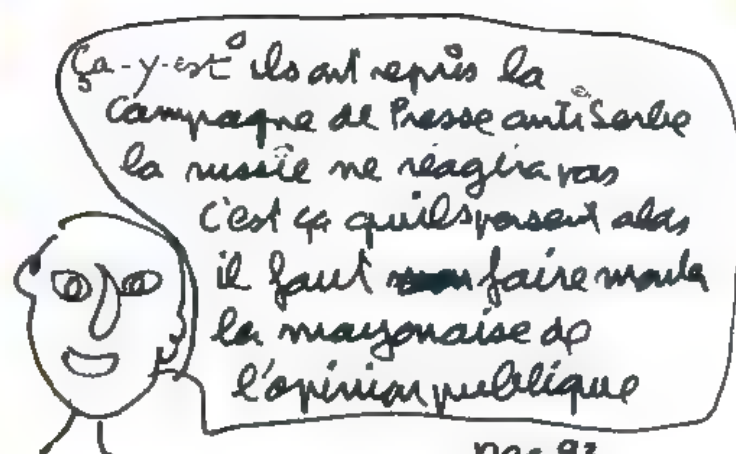 ça-y-est ils ont repris la
campagne de Presse anti Serbe
la russie ne réagira pas
c'est ça qu'ils pensent alors
il faut faire monter
la mayonaise de
l'opinion publique